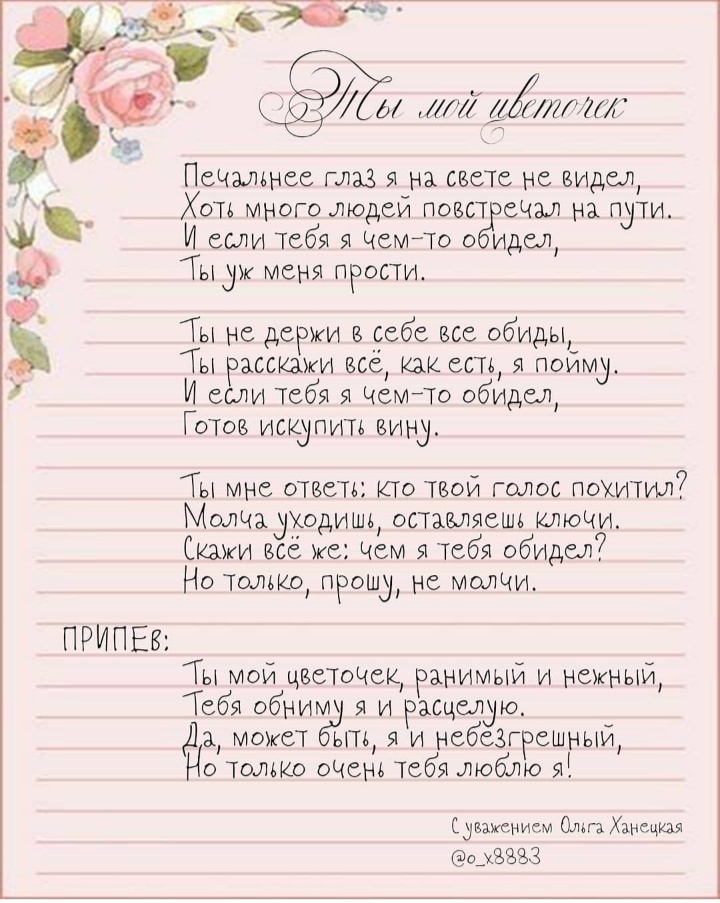 Ты мой цветочек
Печальнее глаз я на свете не видел,
Хоть много людей повстречал на пути.
И если тебя я чем-то обидел,
Ты уж меня прости.
Ты не держи в себе все обиды,
Ты расскажи всё, как есть, я пойму.
И если тебя я чем-то обидел,
Готов искупить вину.
Ты мне ответь: кто твой голос похитил?
Молча уходишь, оставляешь ключи.
Скажи всё же: чем я тебя обидел?
Но только, прошу, не молчи.
ПРИПЕВ:
Ты мой цветочек, ранимый и нежный,
Тебя обниму я и расцелую.
Да, может быть, я и небезгрешный,
Но только очень тебя люблю я!
С уважением Ольга Ханецкая
@o_x8883